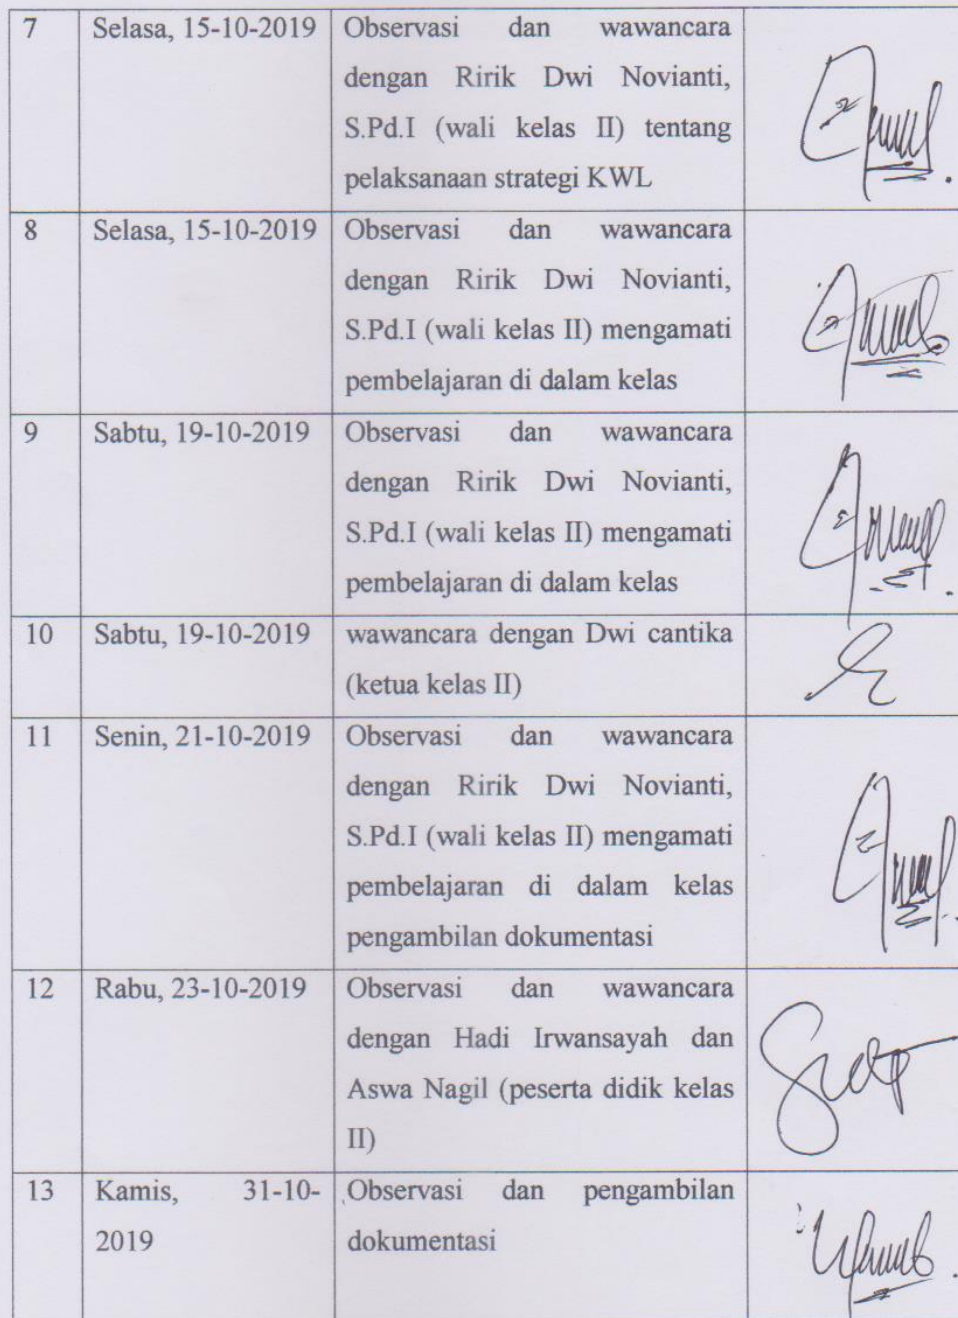 7 Selasa, 15-10-2019 Observasi dan wawancara
dengan Ririk Dwi Novianti,
S.Pd.I (wali kelas II) tentang
pelaksanaan strategi KWL
8 Selasa, 15-10-2019 Observasi dan wawancara
dengan Ririk Dwi Novianti,
S.Pd.I (wali kelas II) mengamati
pembelajaran di dalam kelas
9 Sabtu, 19-10-2019 Observasi dan wawancara
dengan Ririk Dwi Novianti,
S.Pd.I (wali kelas II) mengamati
pembelajaran di dalam kelas
10 Sabtu, 19-10-2019 wawancara dengan Dwi cantika
(ketua kelas II)
11 Senin, 21-10-2019 Observasi dan wawancara
dengan Ririk Dwi Novianti,
S.Pd.I (wali kelas II) mengamati
pembelajaran di dalam kelas
pengambilan dokumentasi
12 Rabu, 23-10-2019 Observasi dan wawancara
dengan Hadi Irwansayah dan
Aswa Nagil (peserta didik kelas
II)
13 Kamis, 31-10- Observasi dan pengambilan
2019 dokumentasi